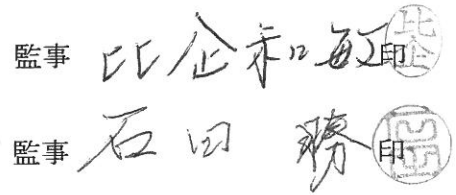 監事 比企和敏印
監事 石田 勝印